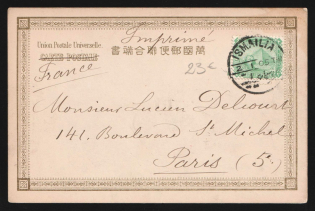 Imprimé
Union Postale Universelle.
CARTE POSTALE
萬國郵便聯合端書
France
23€
ISMAILIA
Monsieur Lucien Delcourt
141. Boulevard St Michel
Paris (5e)